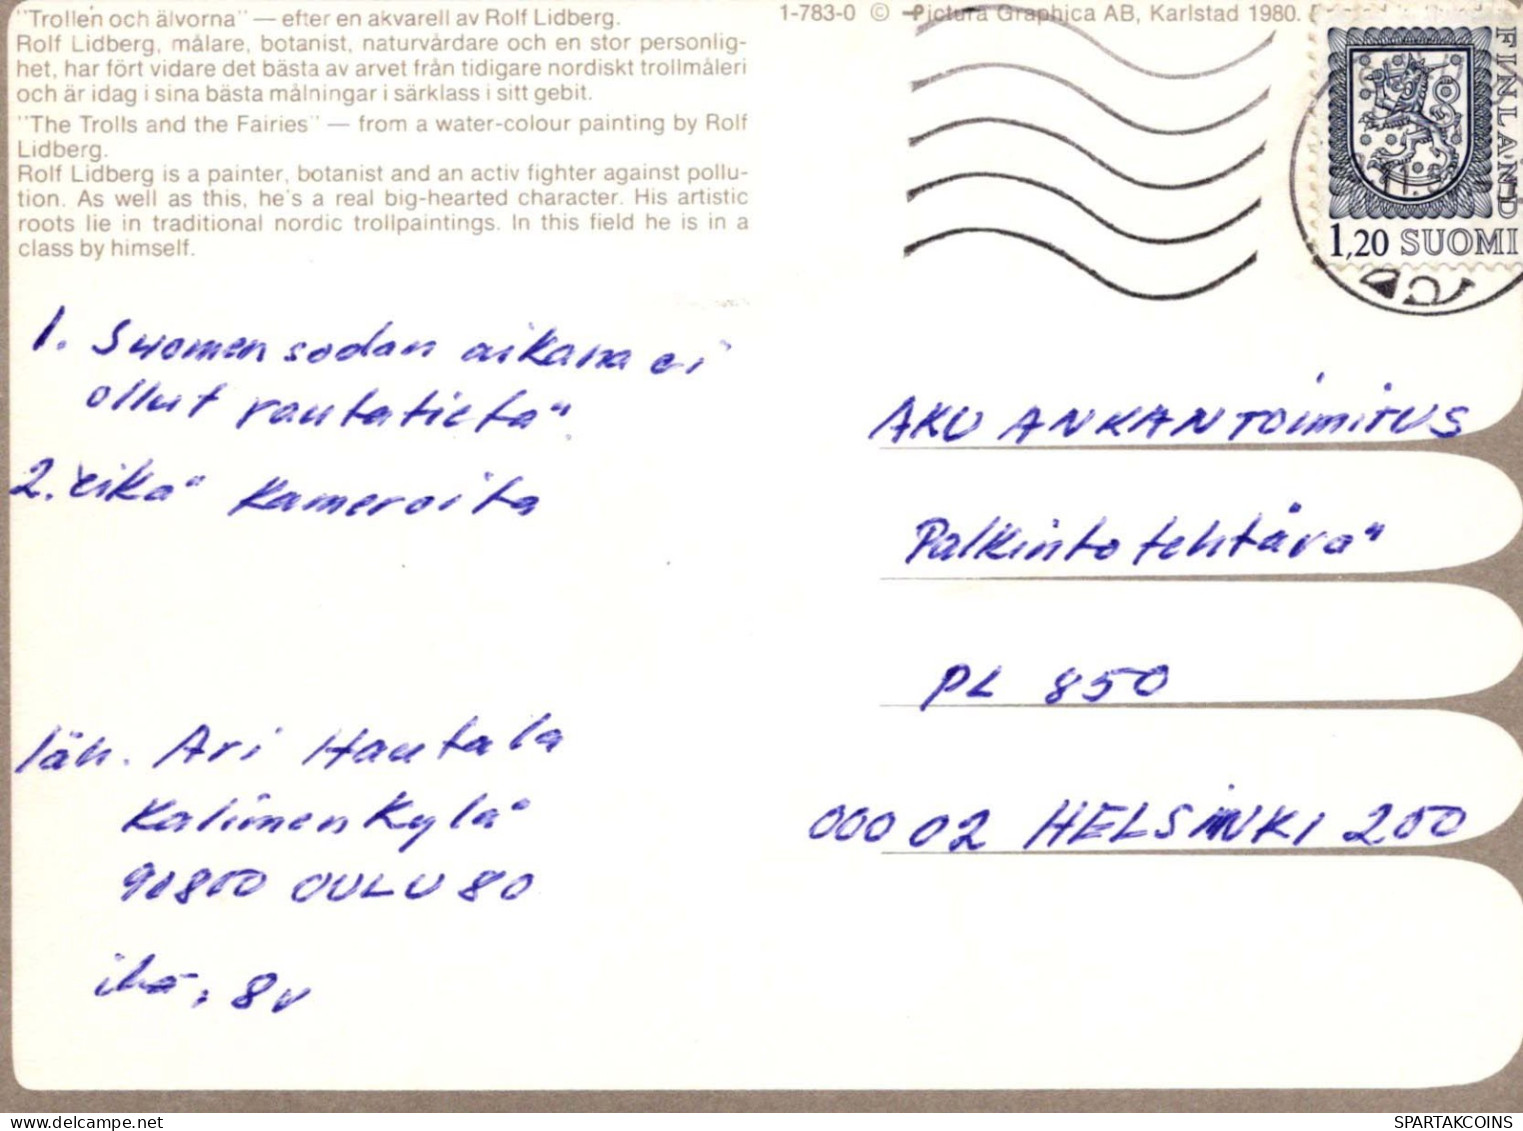 "Trollen och älvorna" — efter en akvarell av Rolf Lidberg.
Rolf Lidberg, målare, botanist, naturvårdare och en stor personlig-
het, har fört vidare det bästa av arvet från tidigare nordiskt trollmåleri
och är idag i sina bästa målningar i särklass i sitt gebit.
"The Trolls and the Fairies" — from a water-colour painting by Rolf
Lidberg.
Rolf Lidberg is a painter, botanist and an activ fighter against pollu-
tion. As well as this, he's a real big-hearted character. His artistic
roots lie in traditional nordic trollpaintings. In this field he is in a
class by himself.
1-783-0 © Pictura Graphica AB, Karlstad 1980.
FINLAND
1,20 SUOMI
1. Suomen sodan aikana ei
ollut rautatietä
2. eikä kameroita
läh. Ari Hautala
Kalimenkylä
90800 OULU 80
ikä, 8v
AKU ANKAN TOIMITUS
Palkintotehtävä
PL 850
00002 HELSINKI 200
SPARTAKCOINS